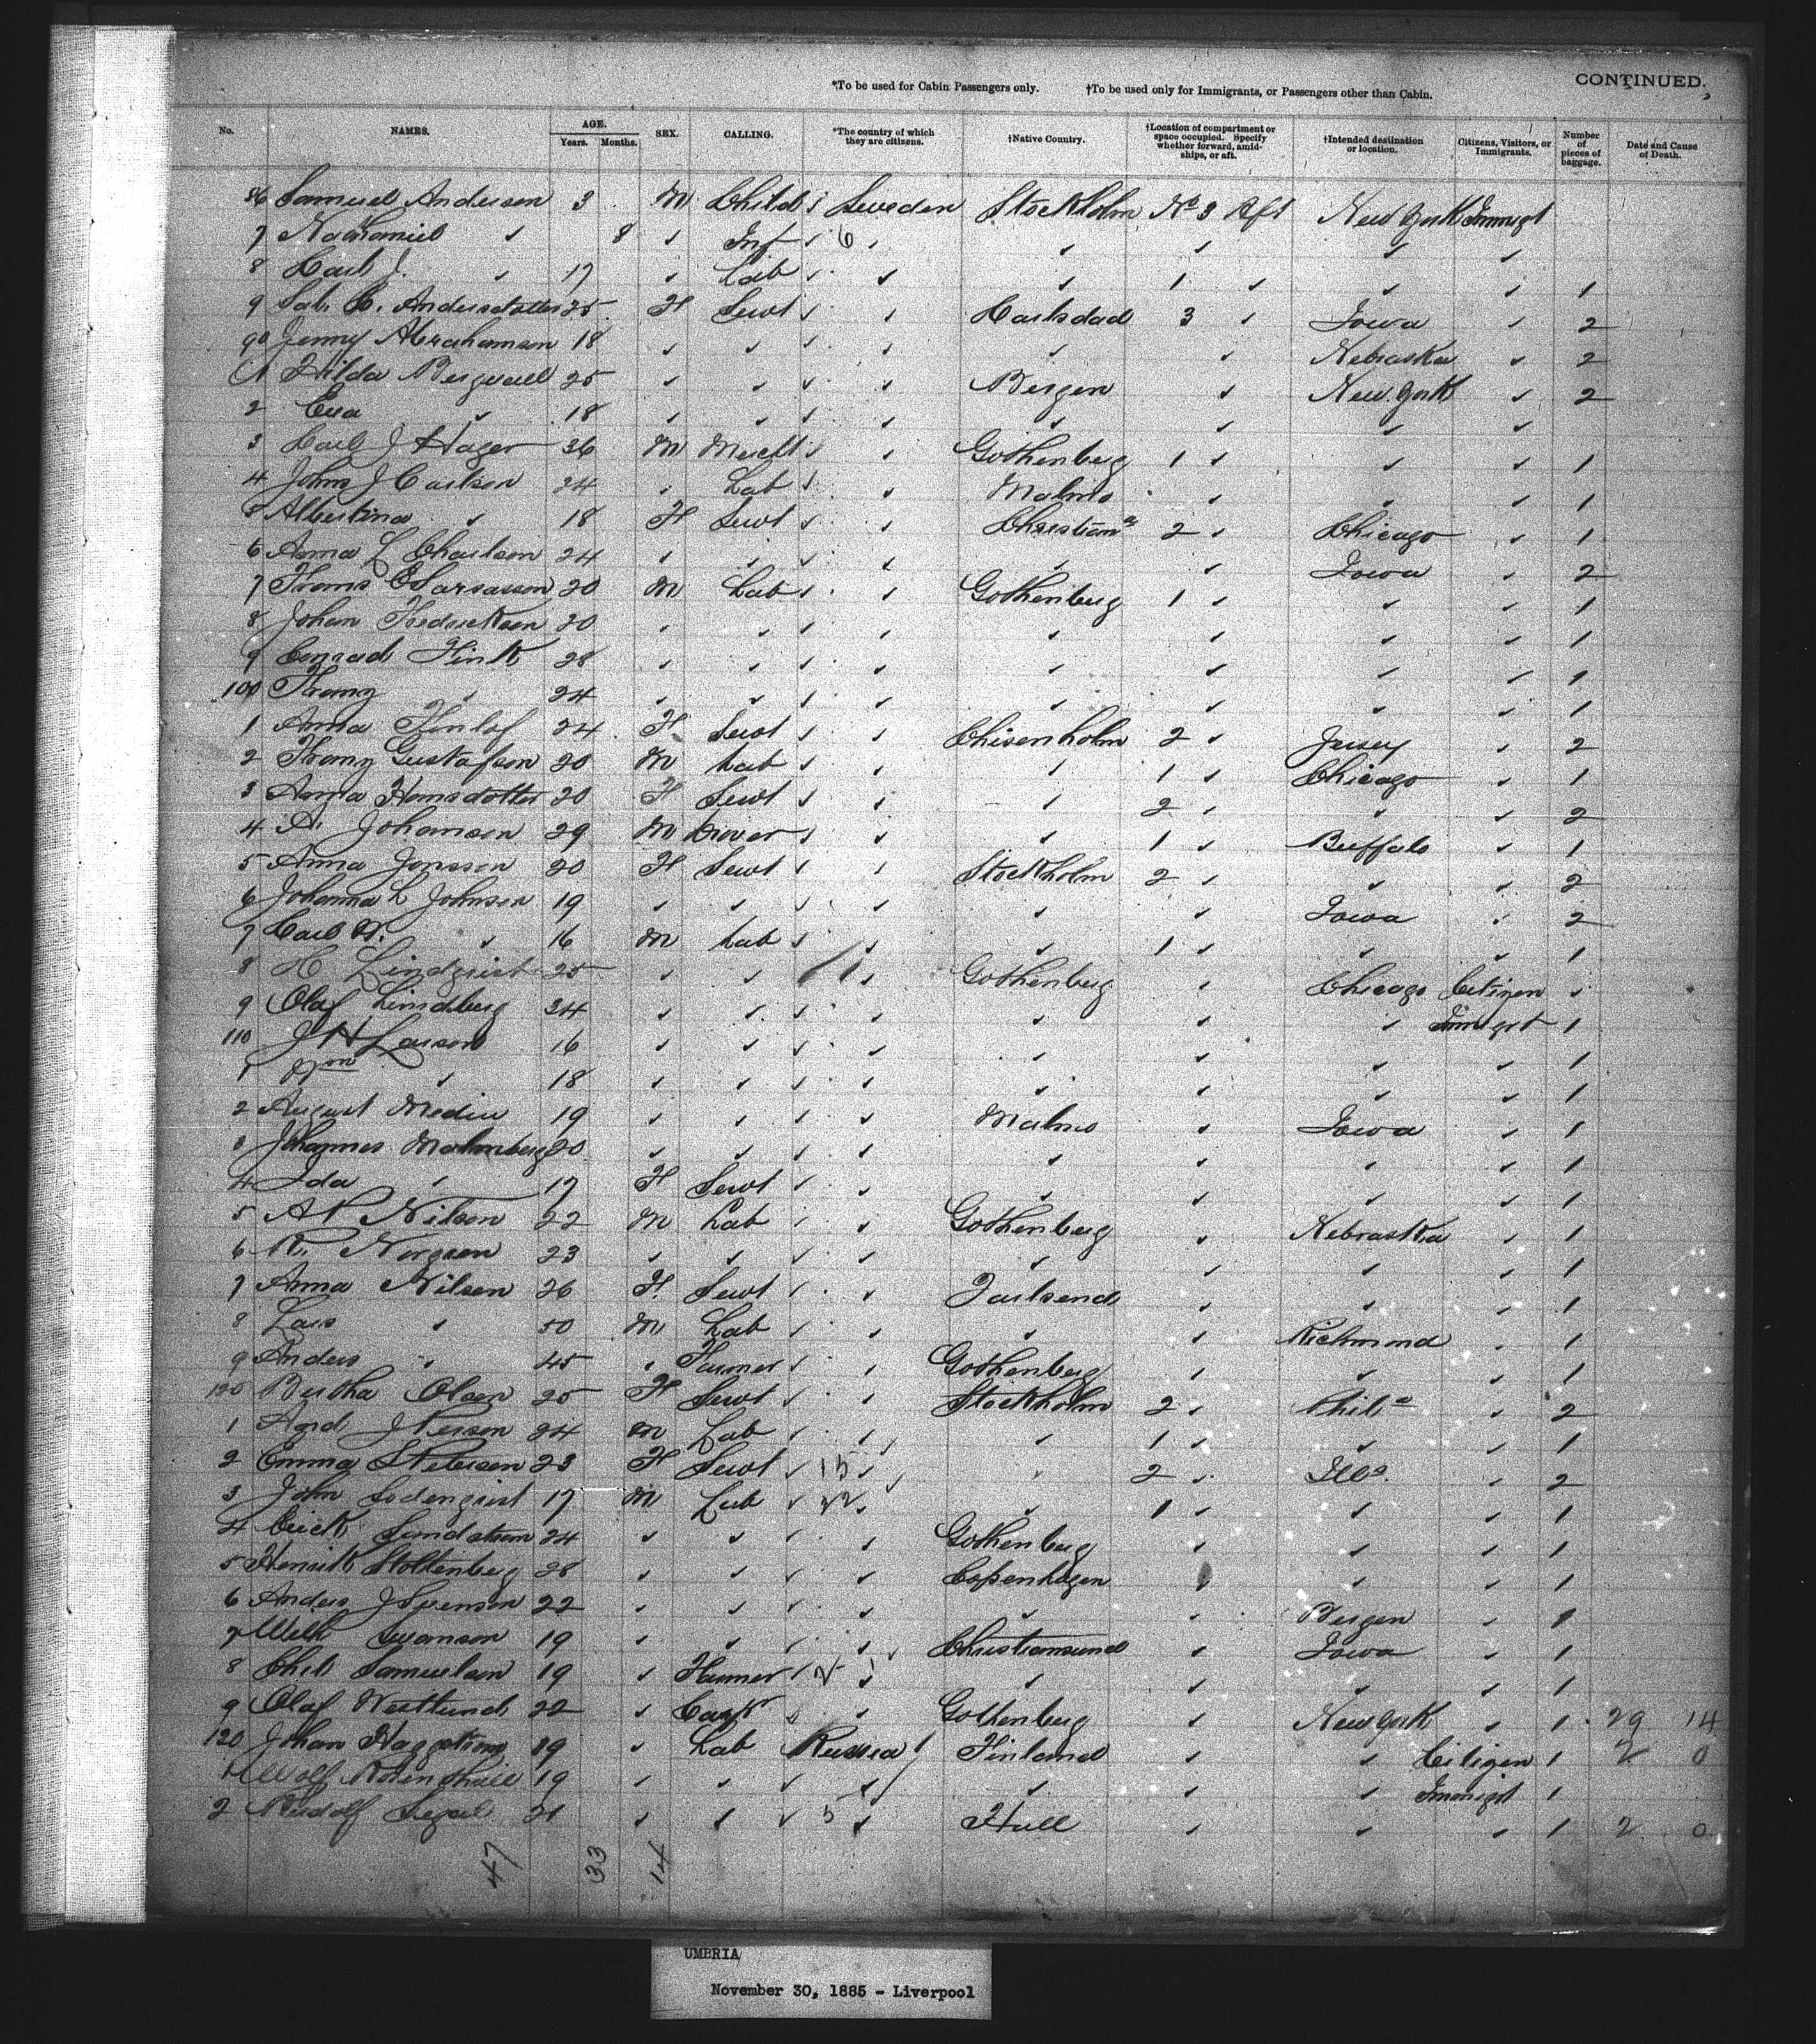 CONTINUED.
*To be used for Cabin Passengers only. †To be used only for Immigrants, or Passengers other than Cabin.
No. NAMES. AGE. Years. Months. SEX. CALLING. *The country of which they are citizens. †Native Country. †Location of compartment or space occupied. Specify whether forward, amidships, or aft. †Intended destination or location. Citizens, Visitors, or Immigrants. Number of pieces of baggage. Date and Cause of Death.
86 Samuel Anderson 3 M Child Sweden Stockholm No 3 Aft New York Immigt
7 Nathaniel " 8 " Inf " 6 " " " " "
8 Carl J. " 17 " Lab " " " 1 " " " 1
9 Andersdotter 25 F Servt " " Carlsdad 3 " Iowa " 2
90 Jenny Abrahamson 18 " " " " " " Nebraska " 2
91 Hilda Bergvall 25 " " " " Bergen " New York " 2
2 Eva " 18 " " " " " " " "
3 Carl J Hager 36 M Mercht " " Gothenberg 1 " " " 1
4 John J Carlson 24 " Lab " " Malmo " " " 1
5 Albertina " 18 F Servt " " Christiana 2 " Chicago " 1
6 Anna L Charlson 24 " " " " " " Iowa " 2
7 20 M Lab " " Gothenberg 1 " " " 1
8 Johan Fredrickson 20 " " " " " " " " 1
9 Conrad Fink 28 " " " " " " " " 1
100 " 24 " " " " " " " " 1
1 Anna 24 F Servt " " Chisenholm 2 " Jersey " 2
2 Gustafson 20 M Lab " " " 1 " Chicago " 1
3 Anna Hansdotter 20 F Servt " " " 2 " " " 2
4 A. Johanson 29 M " " " 1 " Buffalo " 1
5 Anna Jonsson 20 F Servt " " Stockholm 2 " " " 2
6 Johanna L Johnson 19 " " " " " " Iowa " 2
7 Carl " 16 M Lab " " " 1 " " " 1
8 H Lindqvist 25 " " " Gothenberg " Chicago Citizen "
9 Olaf Lindberg 34 " " " " " " " Immigrt 1
110 J H Larson 16 " " " " " " " " 1
1 Wm " 18 " " " " " " " " 1
2 August 19 " " " " Malmo " Iowa " 1
3 Johannes Malmberg 20 " " " " " " " " 1
4 Ida " 17 F Servt " " " " " " 1
5 Nilson 22 M Lab " " Gothenberg " Nebraska " 1
6 Norgren 23 " " " " " " " " 1
7 Anna Nilson 26 F Servt " " " " " 1
8 Lars " 50 M Lab " " " " Richmond " 1
9 Anders " 45 " Farmer " " Gothenberg " " " 1
120 Bertha Olsen 25 F Servt " " Stockholm 2 " Phila " 2
1 24 M Lab " " " 1 " " " 1
2 Emma 23 F Servt " 15 " " 2 " Ills. " 2
3 John Soderqvist 17 M Lab " 32 " " 1 " " " 1
4 Erick Sundstrom 24 " " " " Gothenberg " " " 1
5 Henrik Stoltenberg 28 " " " " Copenhagen " " " 1
6 Anders J Svenson 22 " " " " " " Bergen " 1
7 Swanson 19 " " " " Christiansund " Iowa " 1
8 Samuelson 19 " Farmer " 2 " " " " " 1
9 Olaf Westlund 22 " " " Gothenberg " New York " 1 29 14
120 Johan 19 " Lab Russia Finland " " Citizen 1 2 0
1 19 " " " " " " " Immigrt 1
2 Rudolf 21 " " " 5 " Hull " " " 1 2 0
47 33 14
UMBRIA
November 30, 1885 - Liverpool